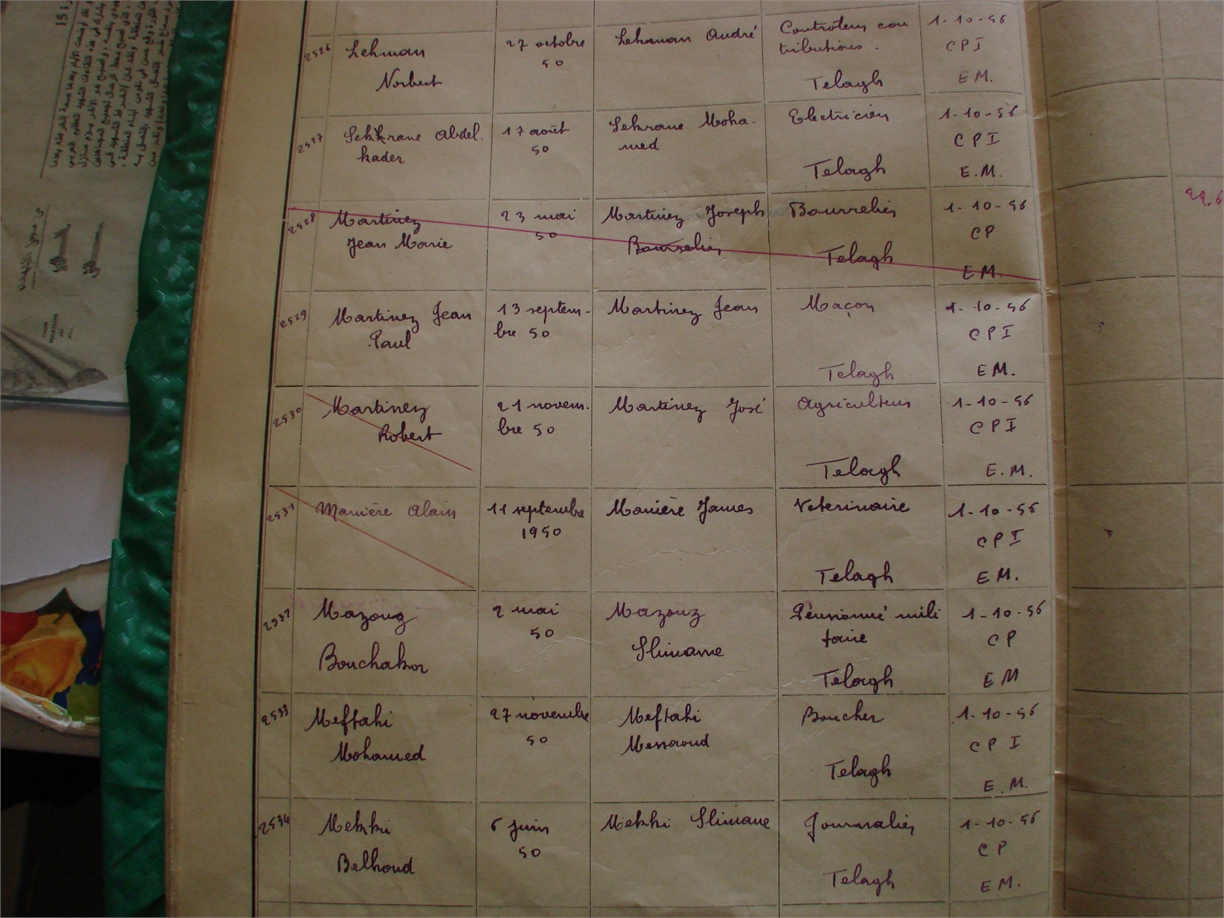 2526 Lehman 27 octobre Lehman André Controleur con 1-10-56
Norbert 50 tributions. CPI
Telagh EM.
2527 Sekkrane Abdel. 17 août Sekrane Moha- Electricien 1-10-56
kader 50 med CPI
Telagh E.M.
2528 Martinez 23 mai Martinez Joseph Bourrelier 1-10-56
Jean Marie 50 Bourrelier CP
Telagh EM.
2529 Martinez Jean 13 septem- Martinez Jean Maçon 1-10-56
Paul bre 50 CPI
Telagh EM.
2530 Martinez 21 novem- Martinez José Agriculteur 1-10-56
Robert bre 50 CPI
Telagh E.M.
2531 Manière Alain 11 septembre Manière James Veterinaire 1-10-56
1950 CPI
Telagh EM.
2532 Mazouz 2 mai Mazouz Pensionné mili 1-10-56
Bouchakor 50 Slimane taire CP
Telagh EM
2533 Meftahi 27 novembre Meftahi Boucher 1-10-56
Mohamed 50 Messaoud CPI
Telagh E.M.
2534 Mekki 6 juin Mekki Slimane Journalier 1-10-56
Belhoud 50 CP
Telagh EM.